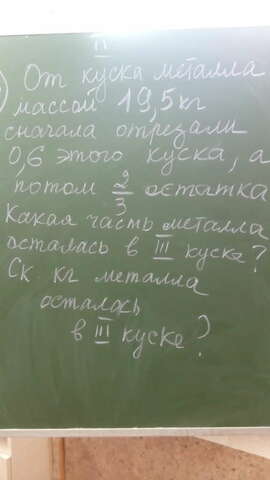 II
От куска металла
массой 19,5 кг
сначала отрезали
0,6 этого куска, а
потом 2/3 остатка
Какая часть металла
осталась в III куске?
Ск. кг металла
осталось
в III куске?